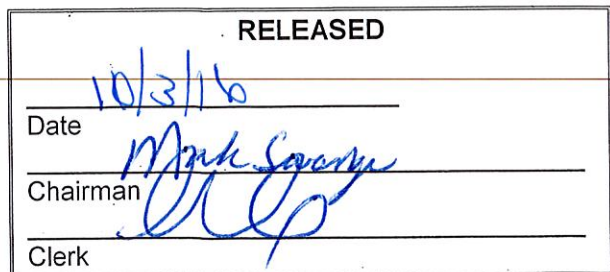 RELEASED
10/3/16
Date
Mark
Chairman
Clerk